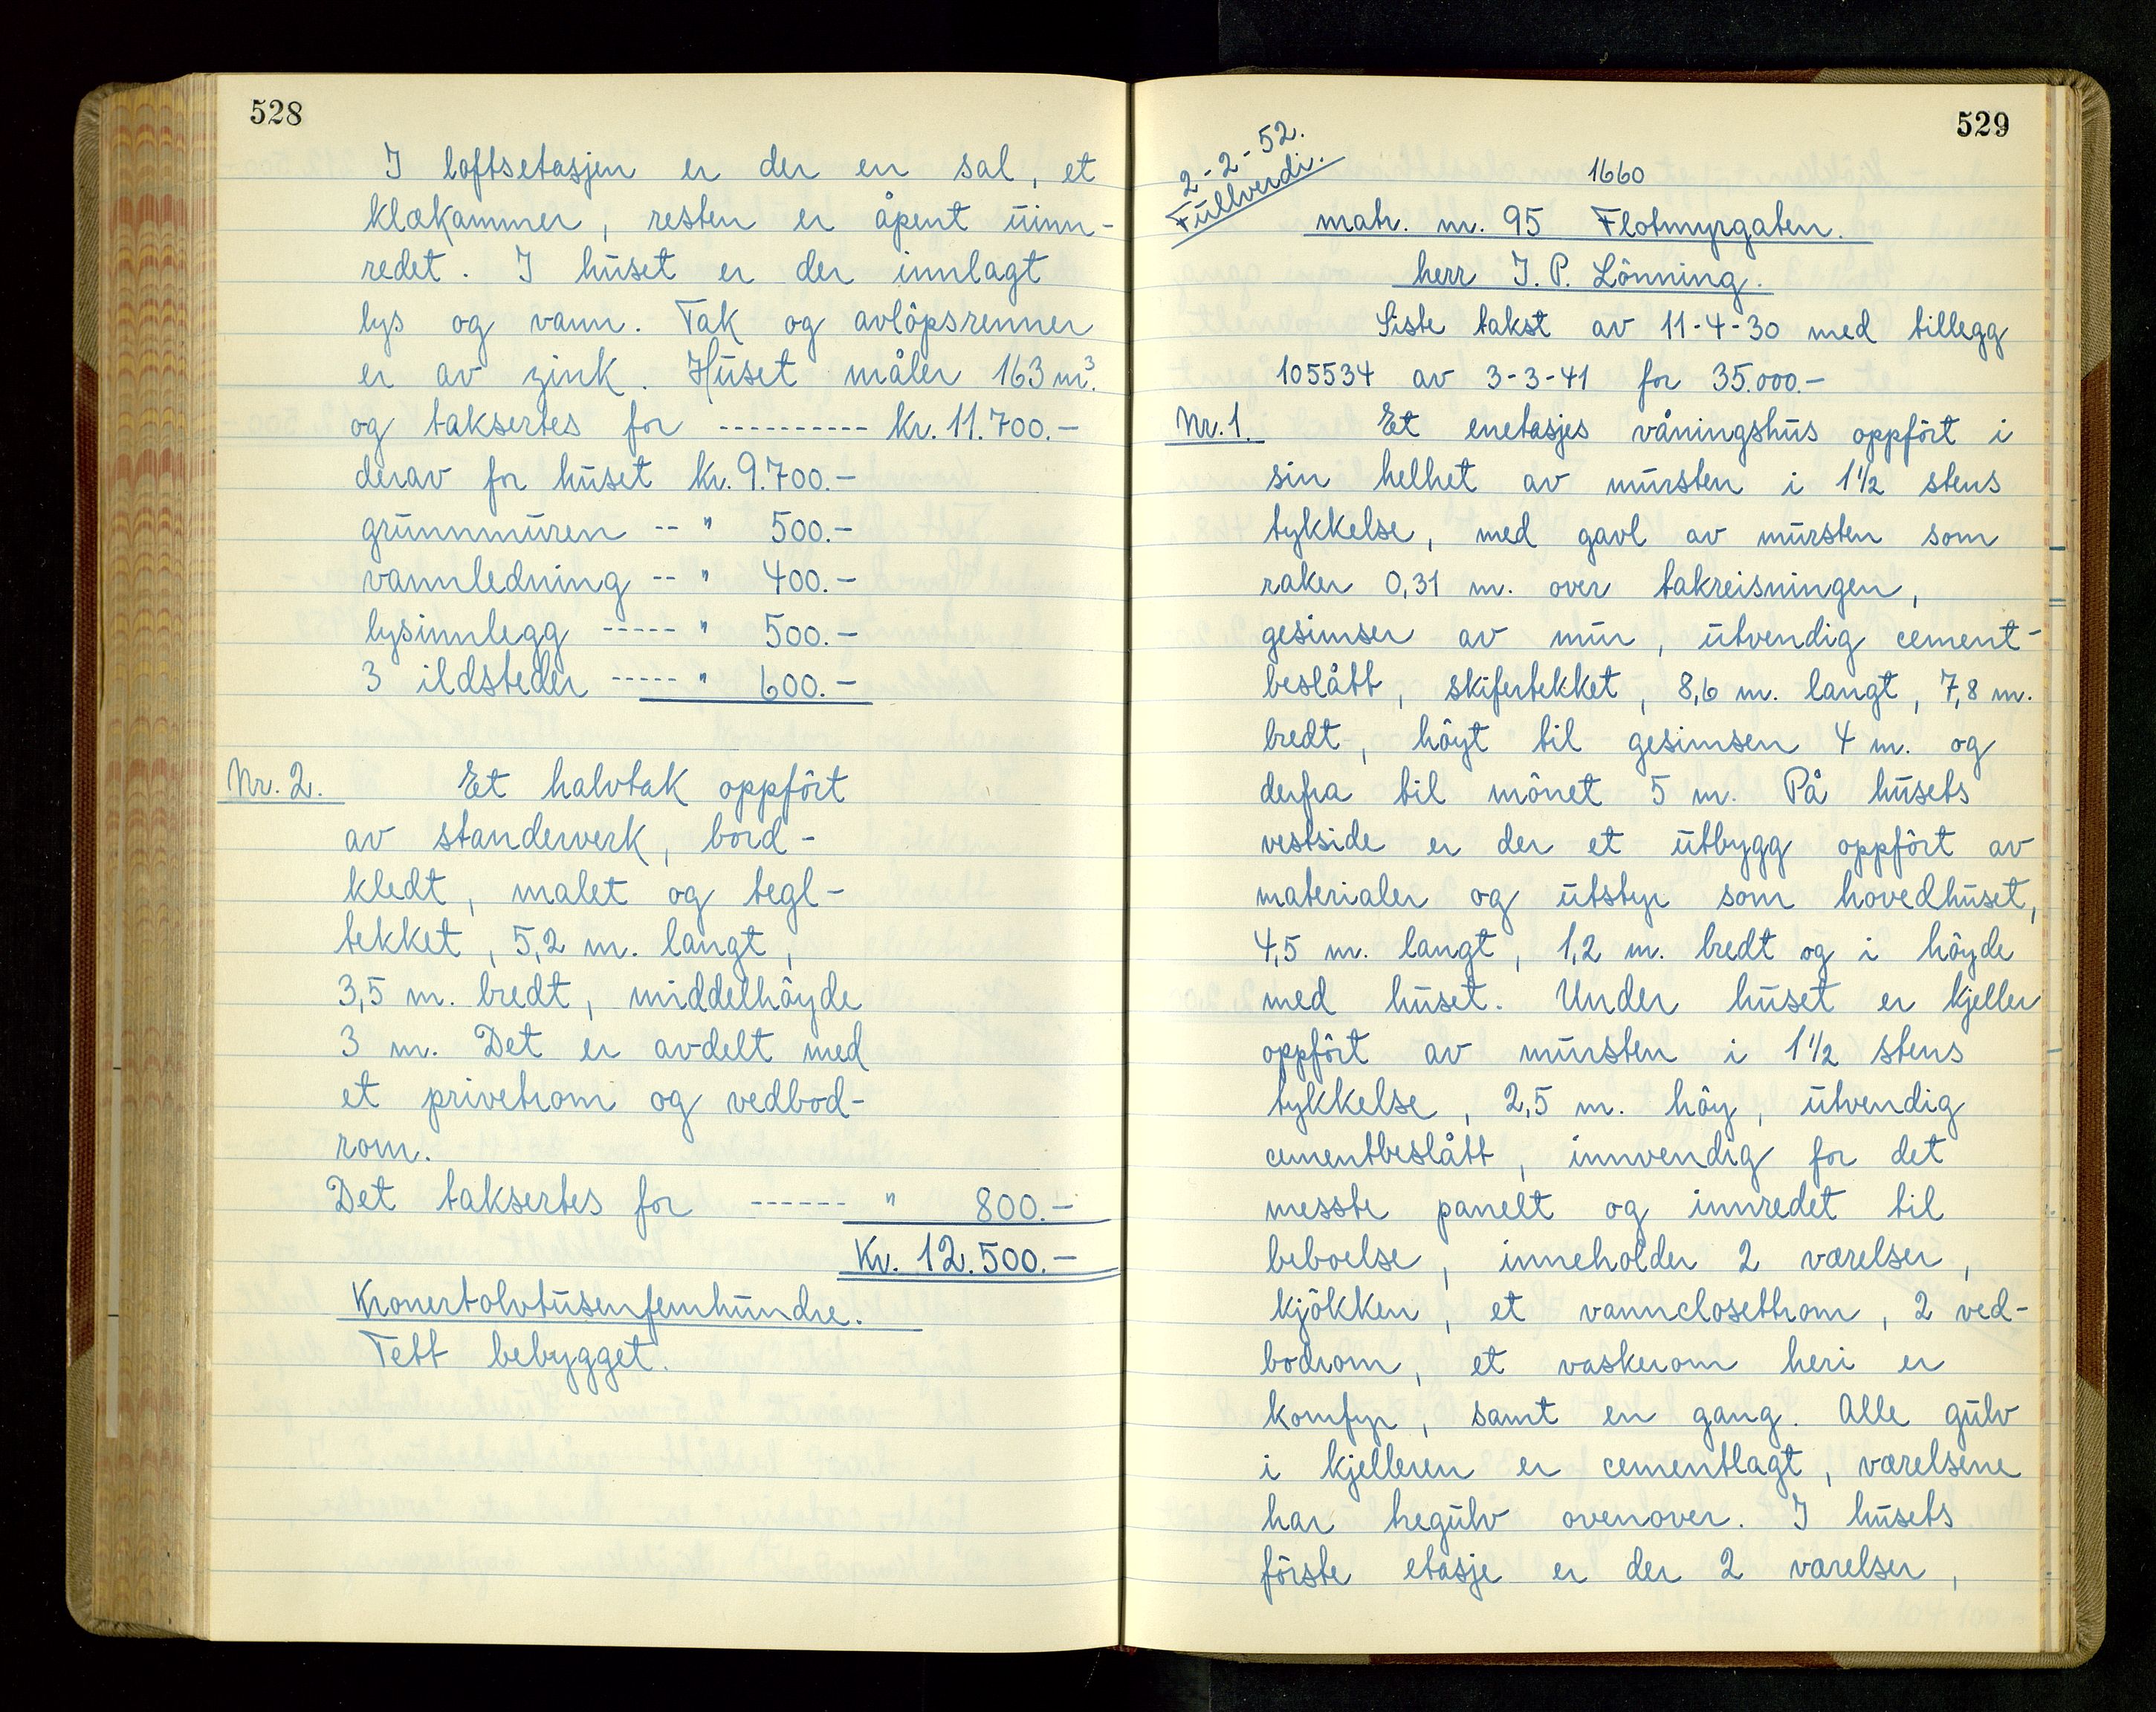 528
I loftsetasjen er der en sal, et
klækammer, resten er åpent uinn-
redet. I huset er der innlagt
lys og vann. Tak og avløpsrenner
er av zink. Huset måler 163 m³.
og taksertes for ---------- Kr. 11.700.-
derav for huset Kr. 9.700.-
grunnmuren -- " 500.-
vannledning -- " 400.-
lysinnlegg ----- " 500.-
3 ildsteder ----- " 600.-
Nr. 2. Et halvtak oppført
av standerverk, bord-
kledt, malet og tegl-
tekket, 5,2 m. langt,
3,5 m. bredt, middelhøyde
3 m. Det er avdelt med
et privetrom og vedbod-
rom.
Det taksertes for ------ " 800.-
Kr. 12.500.-
Kronertolvtusenfemhundre.
Tett bebygget.
529
2-2-52.
Fullverdi.
1660
matr. nr. 95 Flotmyrgaten.
herr J. P. Lönning.
Siste takst av 11-4-30 med tillegg
105534 av 3-3-41 for 35.000.-
Nr. 1. Et enetasjes våningshus oppført i
sin helhet av mursten i 1½ stens
tykkelse, med gavl av mursten som
raker 0,31 m. over takreisningen,
gesimser av mur, utvendig cement-
beslått, skifertekket, 8,6 m. langt, 7,8 m.
bredt, høyt til gesimsen 4 m. og
derfra til mønet 5 m. På husets
vestside er der et utbygg oppført av
materialer og utstyr som hovedhuset,
4,5 m. langt, 1,2 m. bredt og i høyde
med huset. Under huset er kjeller
oppført av mursten i 1½ stens
tykkelse, 2,5 m. høy, utvendig
cementbeslått, innvendig for det
messte panelt og innredet til
beboelse, inneholder 2 værelser,
kjøkken, et vannclosettrom, 2 ved-
bodrom, et vaskerom heri er
komfyr, samt en gang. Alle gulv
i kjelleren er cementlagt, værelsene
har tregulv ovenover. I husets
første etasje er der 2 værelser,